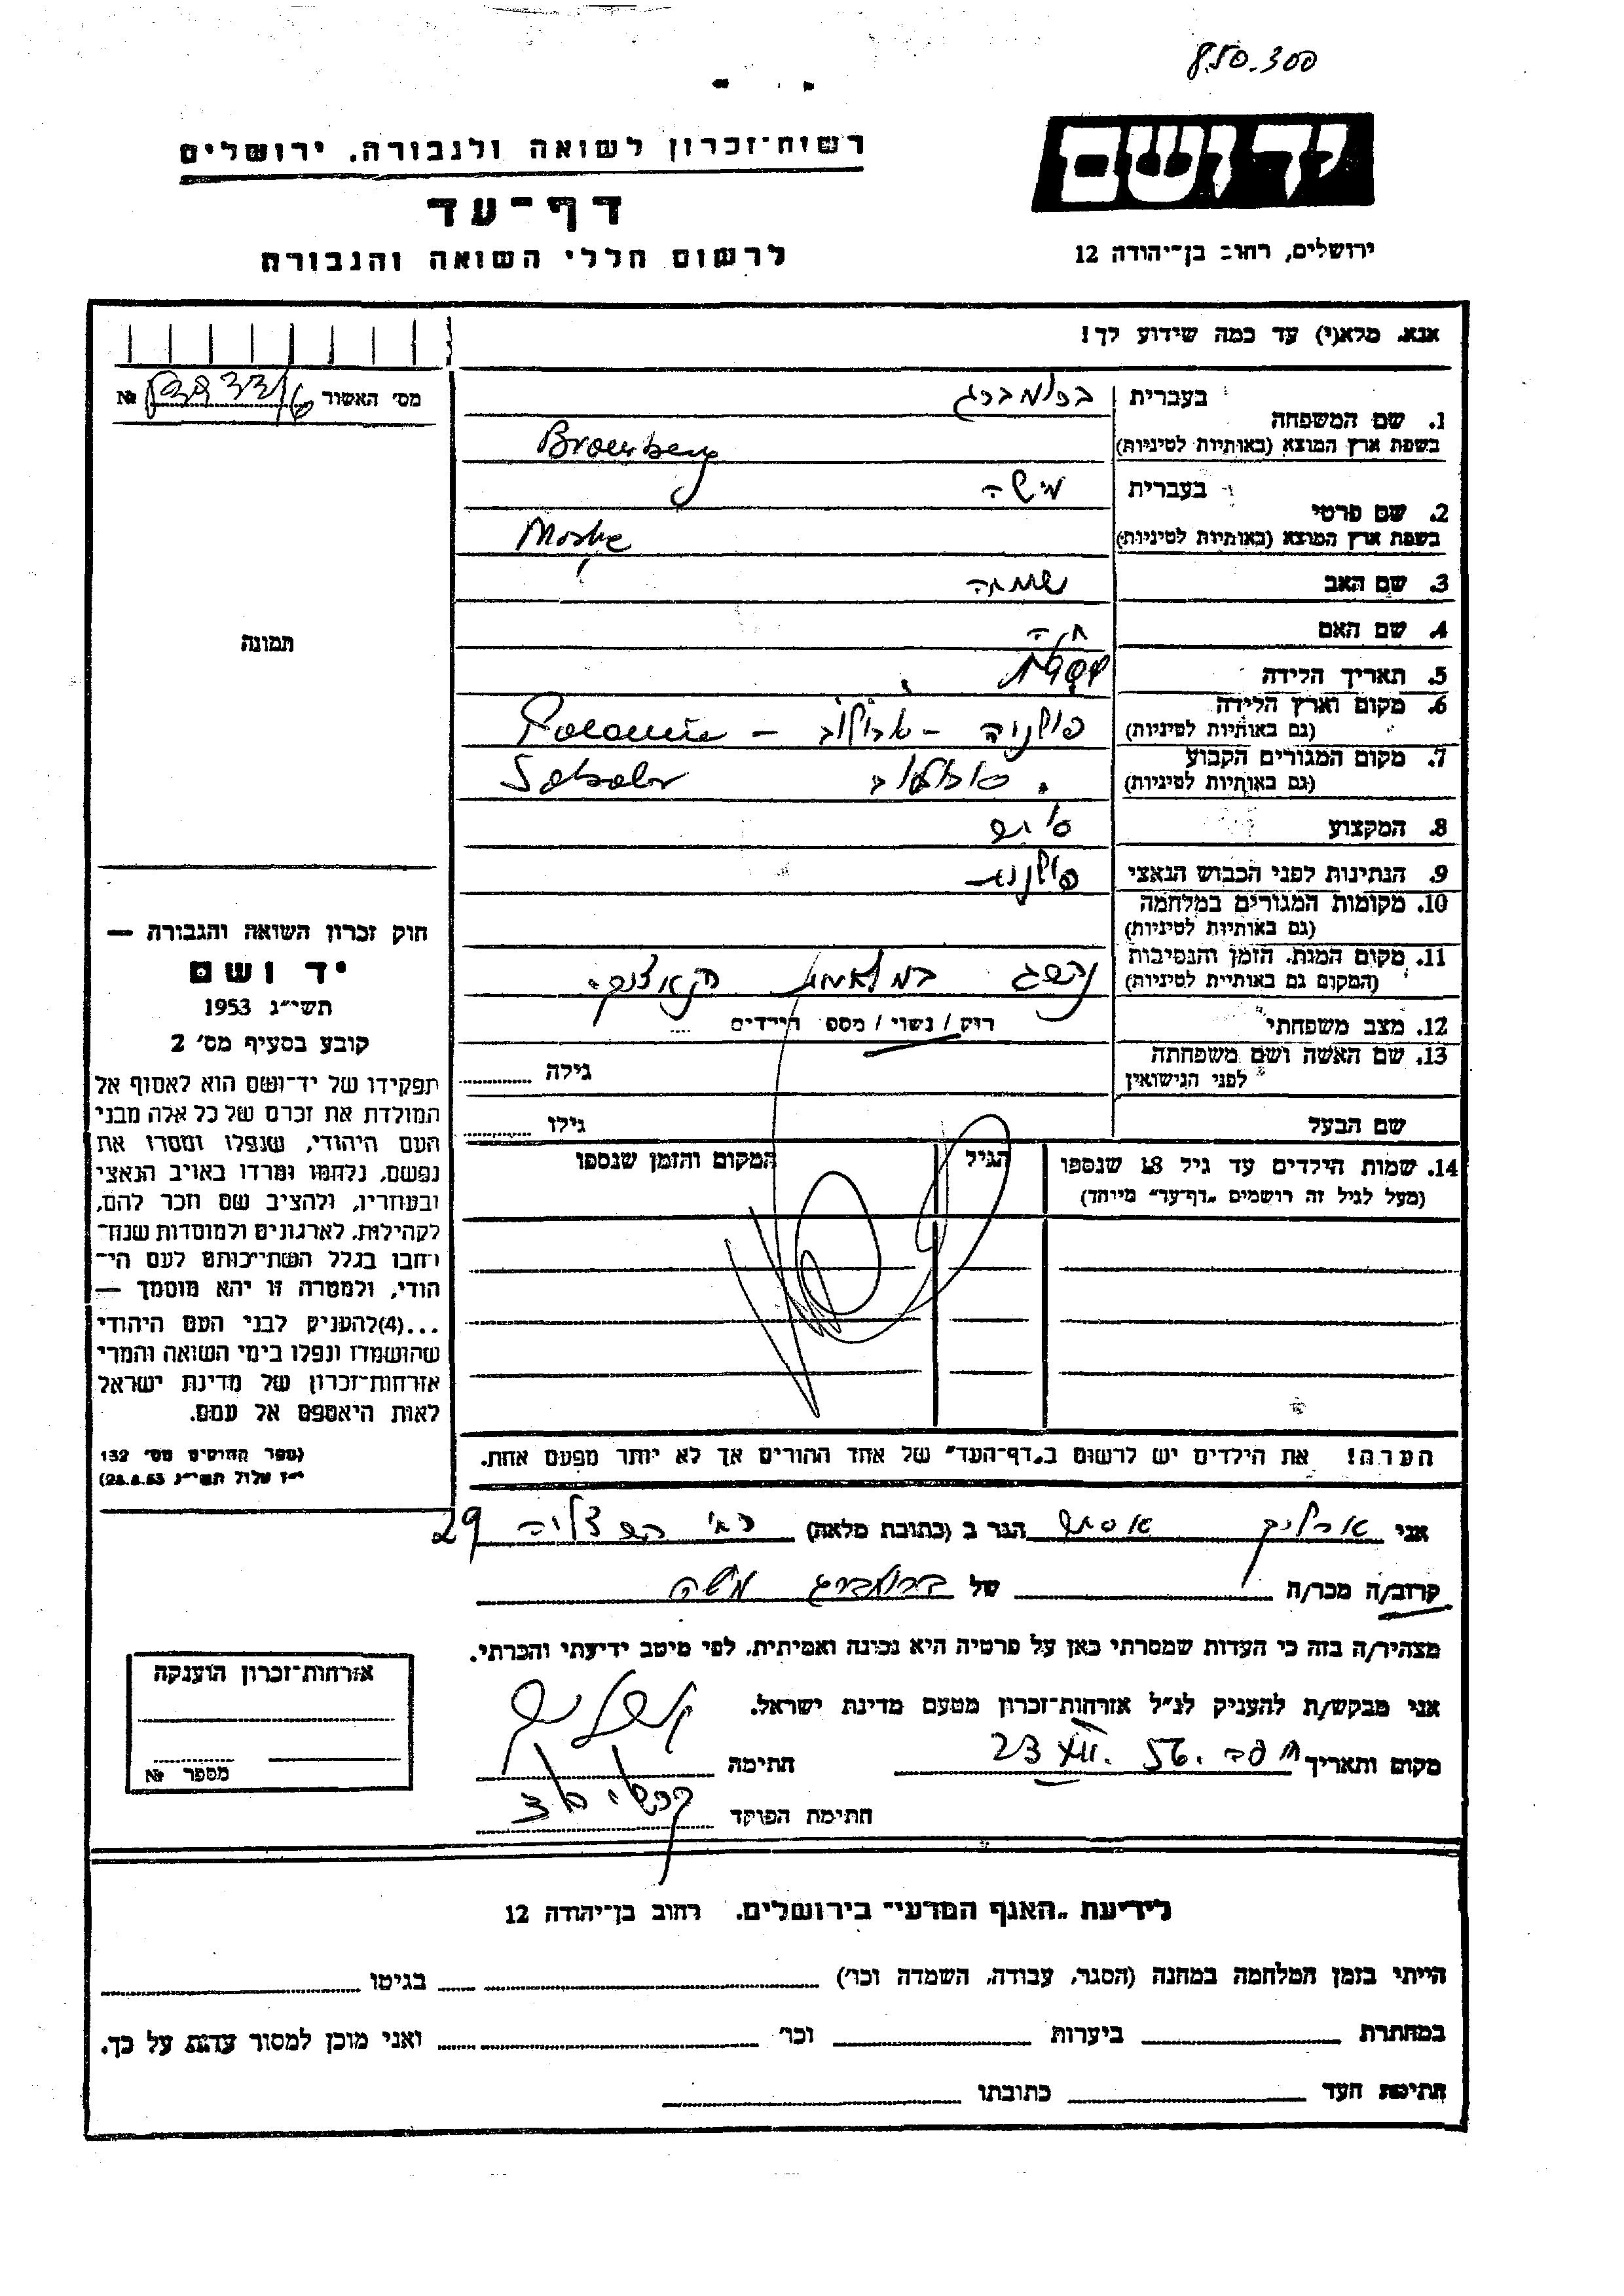 850.300
יד ושם
רשות-זכרון לשואה ולגבורה, ירושלים
דף-עד
לרשום חללי השואה והגבורה
ירושלים, רחוב בן-יהודה 12
אנא, מלא(י) עד כמה שידוע לך!
מס' האשור №
1. שם המשפחה בעברית ברומברג
בשפת ארץ המוצא (באותיות לטיניות) Bromberg
2. שם פרטי בעברית משה
בשפת ארץ המוצא (באותיות לטיניות) Moshe
3. שם האב שמחה
4. שם האם חיה
5. תאריך הלידה
6. מקום וארץ הלידה פולניה –
(גם באותיות לטיניות)
7. מקום המגורים הקבוע
(גם באותיות לטיניות)
8. המקצוע
9. הנתינות לפני הכבוש הנאצי פולנית
10. מקומות המגורים במלחמה
(גם באותיות לטיניות)
11. מקום המות, הזמן והנסיבות נהרג
(המקום גם באותיות לטיניות)
12. מצב משפחתי רווק / נשוי / מספר הילדים
13. שם האשה ושם משפחתה גילה
לפני הנישואין
שם הבעל גילו
14. שמות הילדים עד גיל 18 שנספו הגיל המקום והזמן שנספו
(מעל לגיל זה רושמים "דף-עד" מיוחד)
הערה! את הילדים יש לרשום ב"דף-העד" של אחד ההורים אך לא יותר מפעם אחת.
תמונה
חוק זכרון השואה והגבורה —
יד ושם
תשי"ג 1953
קובע בסעיף מס' 2
תפקידו של יד-ושם הוא לאסוף אל
המולדת את זכרם של כל אלה מבני
העם היהודי, שנפלו ומסרו את
נפשם, נלחמו ומרדו באויב הנאצי
ובעוזריו, ולהציב שם וזכר להם,
לקהילות, לארגונים ולמוסדות שנח-
רבו בגלל השתייכותם לעם הי-
הודי, ולמטרה זו יהא מוסמך —
...(4)להעניק לבני העם היהודי
שהושמדו ונפלו בימי השואה והמרי
אזרחות-זכרון של מדינת ישראל
לאות היאספם אל עמם.
(ספר החוקים מס' 132
י"ז אלול תשי"ג 28.8.53)
אני הגר ב (כתובת מלאה) 29
קרוב/ה מכר/ה של ברומברג משה
מצהיר/ה בזה כי העדות שמסרתי כאן על פרטיה היא נכונה ואמיתית, לפי מיטב ידיעתי והכרתי.
אני מבקש/ת להעניק לנ"ל אזרחות-זכרון מטעם מדינת ישראל.
מקום ותאריך 23 XII. 56. חתימה
חתימת הפוקד
אזרחות-זכרון הוענקה
מספר №
לידיעת "האגף המדעי" בירושלים, רחוב בן-יהודה 12
הייתי בזמן המלחמה במחנה (הסגר, עבודה, השמדה וכו') בגיטו
במחתרת ביערות וכו' ואני מוכן למסור עדות על כך.
חתימת העד כתובתו